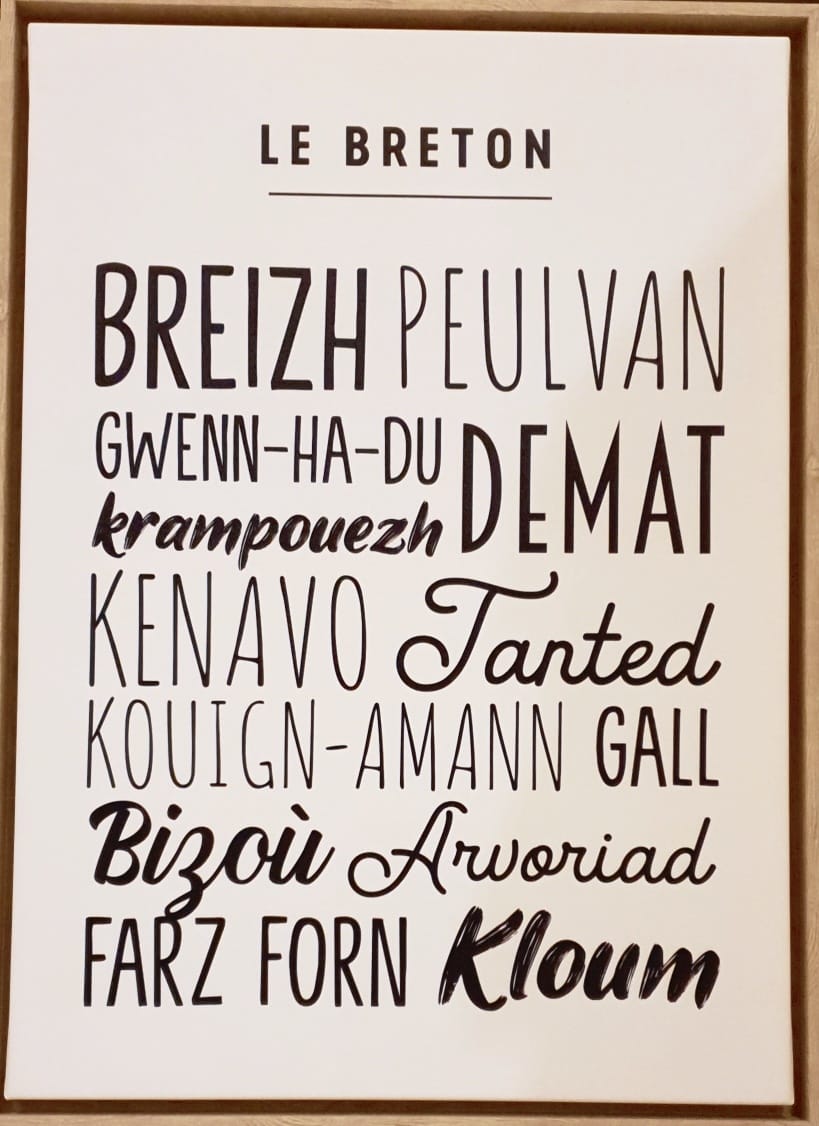 LE BRETON
BREIZH PEULVAN
GWENN-HA-DU DEMAT
krampouezh
KENAVO Tanted
KOUIGN-AMANN GALL
Bizoù Arvoriad
FARZ FORN Kloum